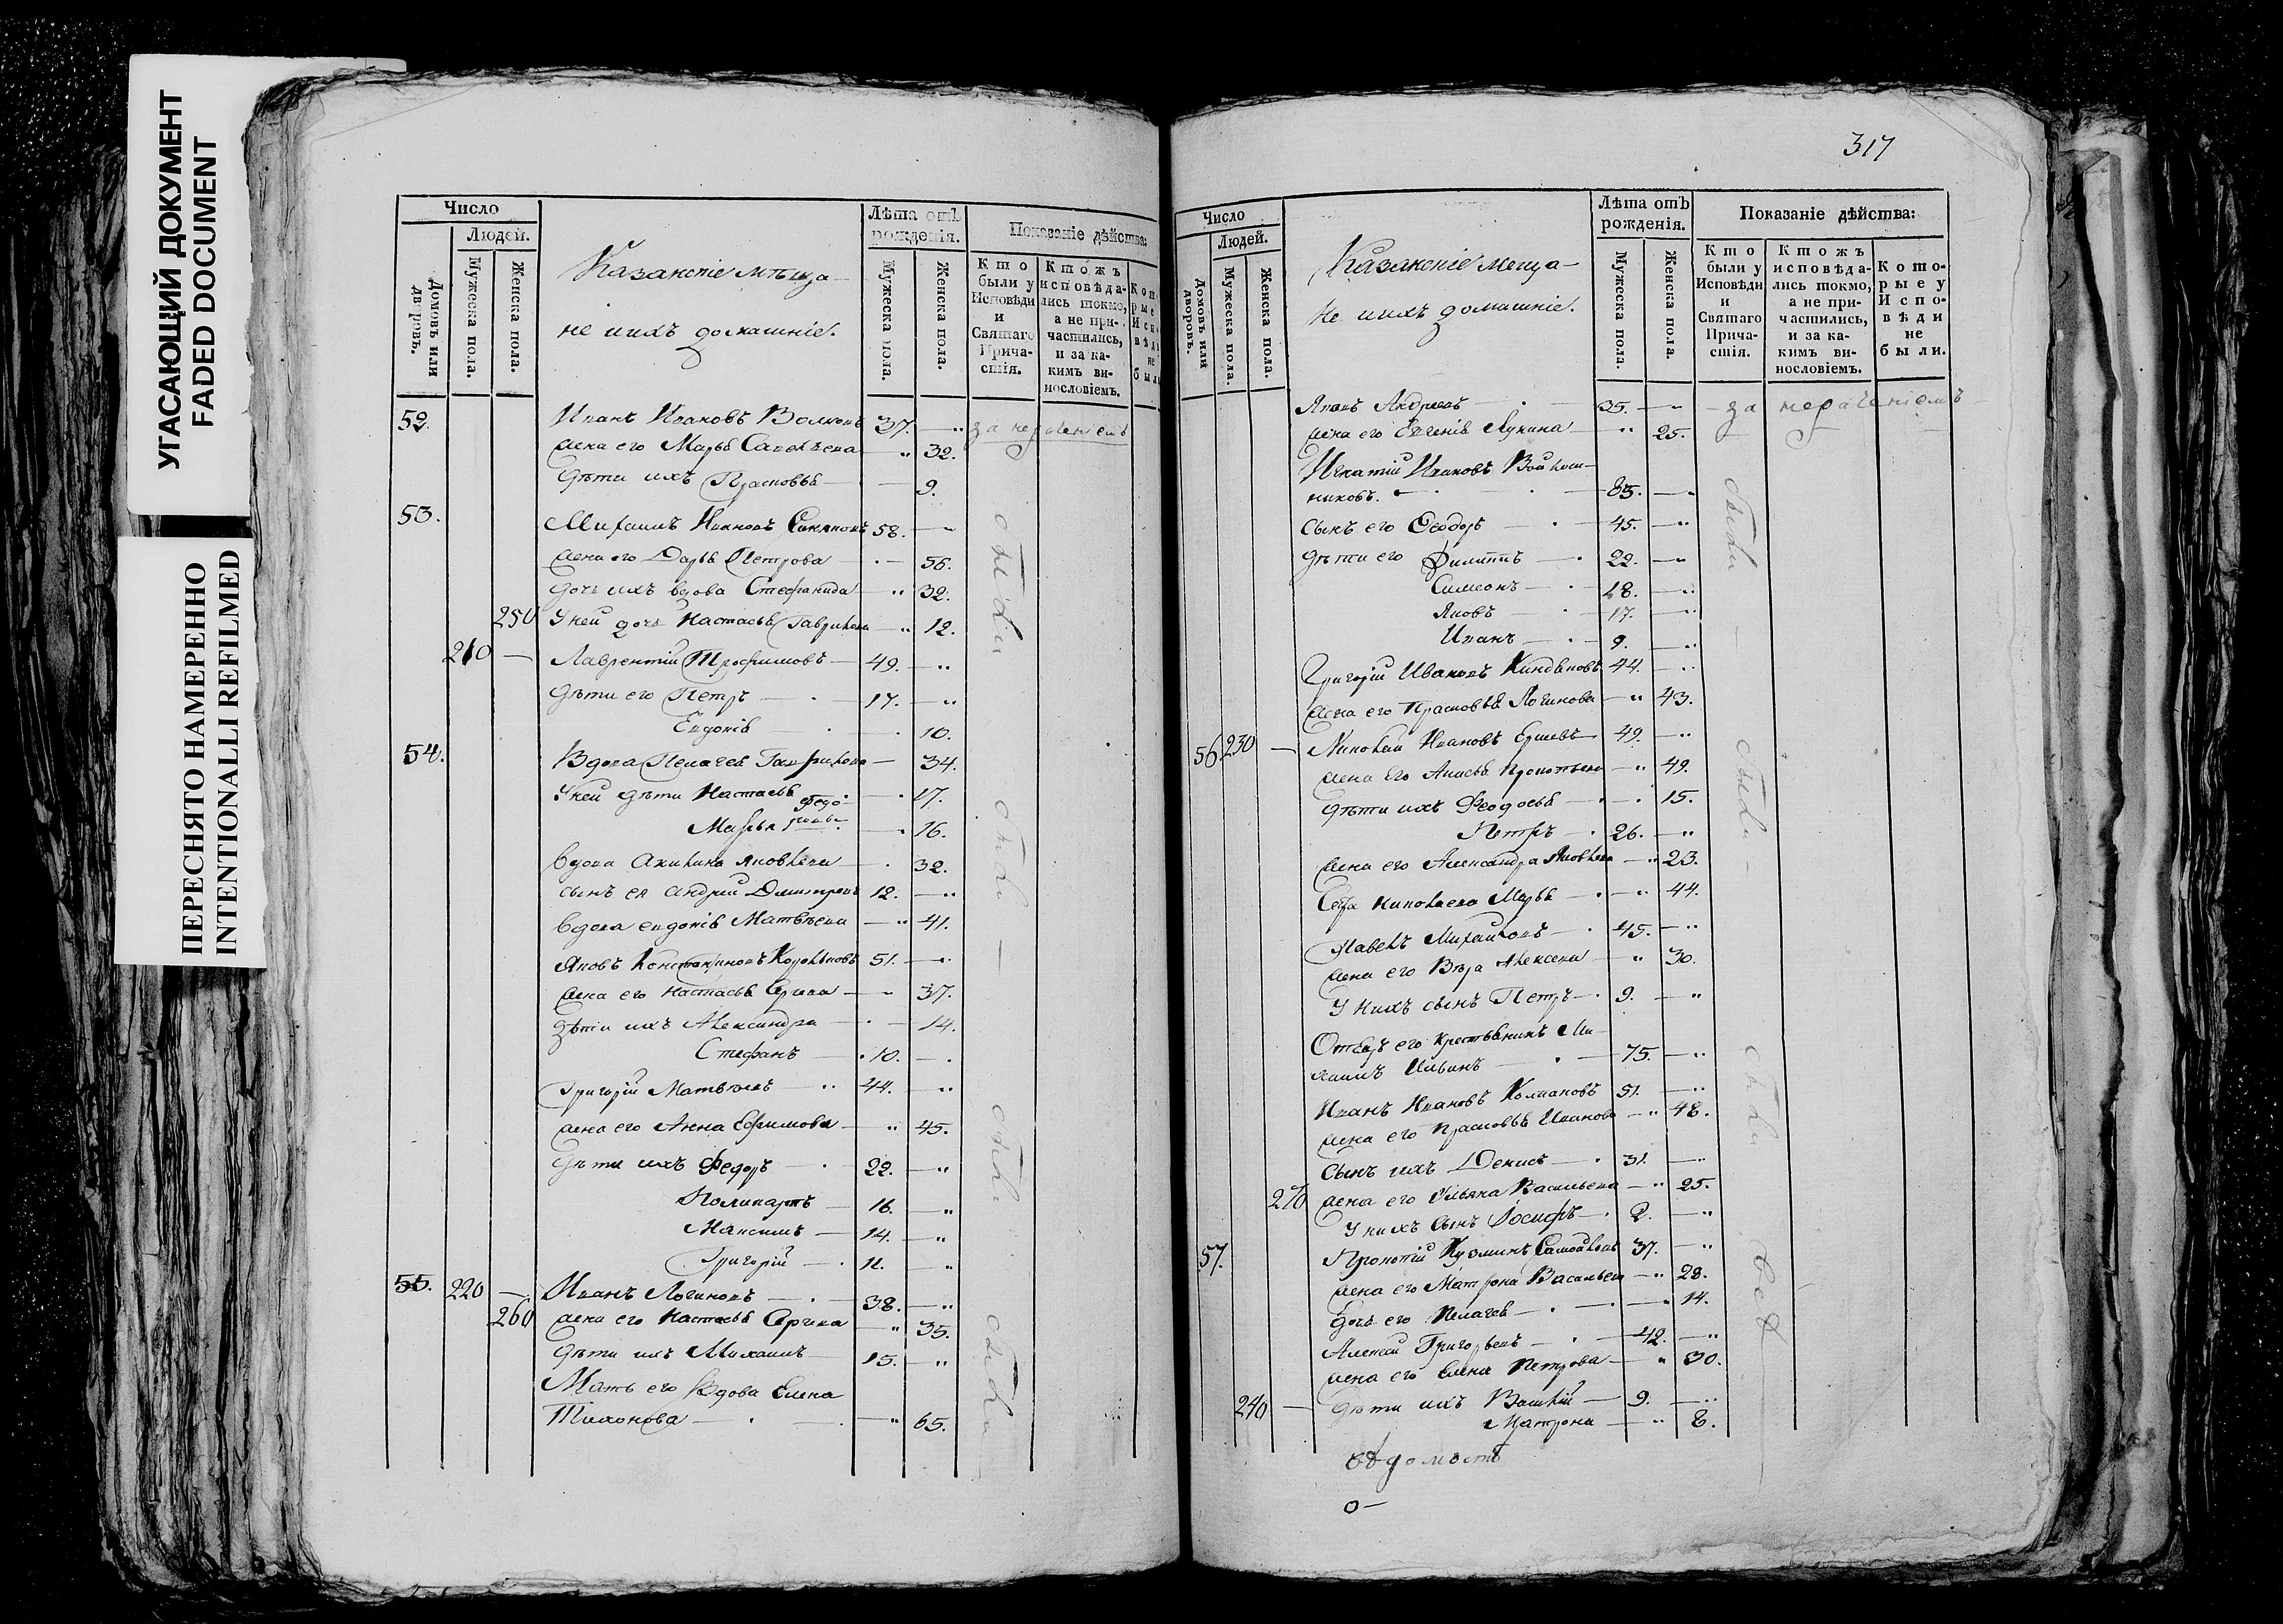 УГАСАЮЩИЙ ДОКУМЕНТ
FADED DOCUMENT
ПЕРЕСНЯТО НАМЕРЕННО
INTENTIONALLI REFILMED
Число
Людей.
Домовъ или дворовъ.
Мужеска пола.
Женска пола.
Казанскіе мѣща-
не и ихъ домашніе.
Лѣта отъ рожденія.
Мужеска пола.
Женска пола.
Показаніе дѣйства:
Кто были у Исповѣди и Святаго Причастія.
Ктожъ исповѣдались токмо, а не причастились, и за какимъ винословіемъ.
52. Иванъ Ивановъ Волковъ 37. — " за нераченіемъ
жена его Марья Савельева " 32.
дѣти ихъ Прасковья — 9.
53. Михаилъ Ивановъ 58. — "
жена его Дарья Петрова — 56.
дочь ихъ вдова Стефанида — " 32.
250 У ней дочь Настасья Гаврилова — " 12.
210 — Лаврентій Трофимовъ — 49. — "
дѣти его Петръ — 17. — "
Евдокія 10.
54. Вдова Пелагея Гаврилова — 34.
У ней дѣти Настасья Федо- 17.
Марья ровы 16.
вдова Акилина Яковлева — 32.
сынъ ея Андрей Дмитревъ 12. — "
вдова Евдокія Матвѣева — " 41.
Яковъ Константиновъ 51. — "
жена его Настасья — " 37.
дѣти ихъ Александра — 14.
Стефанъ — 10. —
Григорій Матвѣевъ — 44. — "
жена его Анна Ефимова — " 45.
дѣти ихъ Федоръ — 22. — "
Поликарпъ — 16. — "
Максимъ — 14. — "
Григорій — 11. — "
55. 220 — Иванъ Логиновъ — 38. — "
260 жена его Настасья — " 35.
дѣти ихъ Михаилъ 15. — "
Мать его Вдова Елена
Тихонова — — " 65.
были
были —
были
были
317
Число
Людей.
Домовъ или дворовъ.
Мужеска пола.
Женска пола.
Казанскіе меща-
не и ихъ домашніе.
Лѣта отъ рожденія.
Мужеска пола.
Женска пола.
Показаніе дѣйства:
Кто были у Исповѣди и Святаго Причастія.
Ктожъ исповѣдались токмо, а не причастились, и за какимъ винословіемъ.
Которые у Исповѣди не были.
Яковъ Андреевъ — 35. — " — за нераченіемъ
жена его Евгенія Лукина — " 25.
Игнатій Ивановъ
никовъ. — 85. — "
сынъ его Ѳеодоръ — 45. — "
дѣти его Филиппъ — 22. — "
Симеонъ — 18. — "
Яковъ — 17. — "
Иванъ — 9. — "
Григорій Ивановъ 44. — "
жена его Прасковья Логинова — " 43.
56 230 — Николай Ивановъ Ершевъ 49. — "
жена его Анисья Прокопьева — " 49.
дѣти ихъ Феодосья — 15.
Петръ — 26. — "
жена его Александра Яковлева — " 23.
Сестра Николаева Марья — " 44.
Павелъ Михайловъ — 45. — "
жена его Вѣра Алексеева — " 30.
У нихъ сынъ Петръ — 9. — "
Отецъ его крестьянинъ Ми-
хаилъ Ильинъ — 75. — "
Иванъ Ивановъ Колпаковъ 51. — "
жена его Прасковья Иванова — " 48.
Сынъ ихъ Денисъ — 31. — "
270 жена его Ульяна Васильева — " 25.
У нихъ сынъ Іосифъ — 2. — "
57. Прокопій Кузминъ 37. — "
жена его Матрона Васильева — " 28.
дочь его Пелагея — — " 14.
Алексей Григорьевъ — 42. — "
жена его Елена Петрова — " 30.
240 — дѣти ихъ Василій — 9. — "
Матрона — " 8.
были —
были —
были
вѣдомость